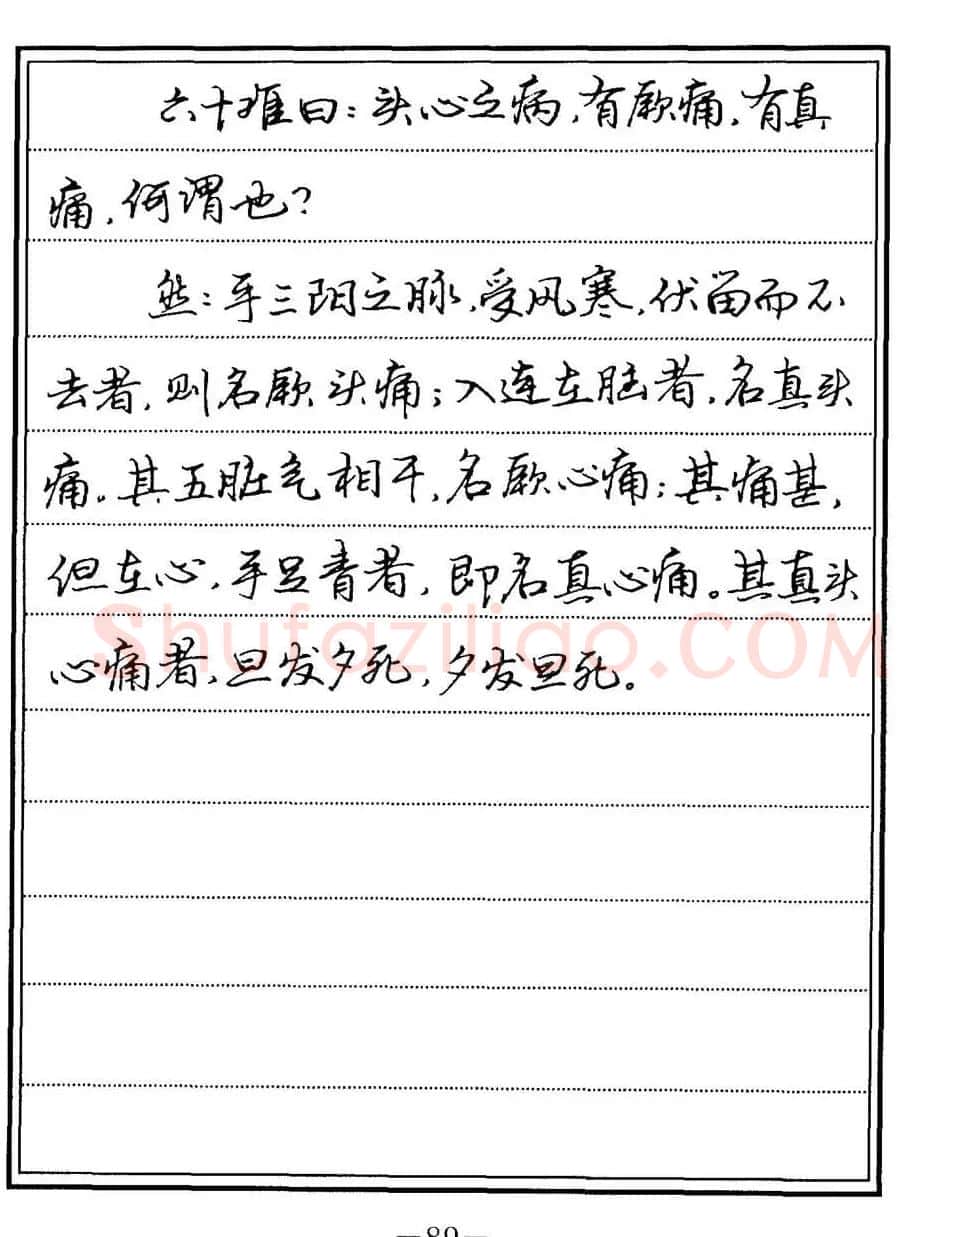 六十难曰：头心之病，有厥痛，有真
痛，何谓也？
然：手三阳之脉，受风寒，伏留而不
去者，则名厥头痛；入连在脑者，名真头
痛。其五脏气相干，名厥心痛；其痛甚，
但在心，手足青者，即名真心痛。其真头
心痛者，旦发夕死，夕发旦死。
Shufaziliao.COM
—89—